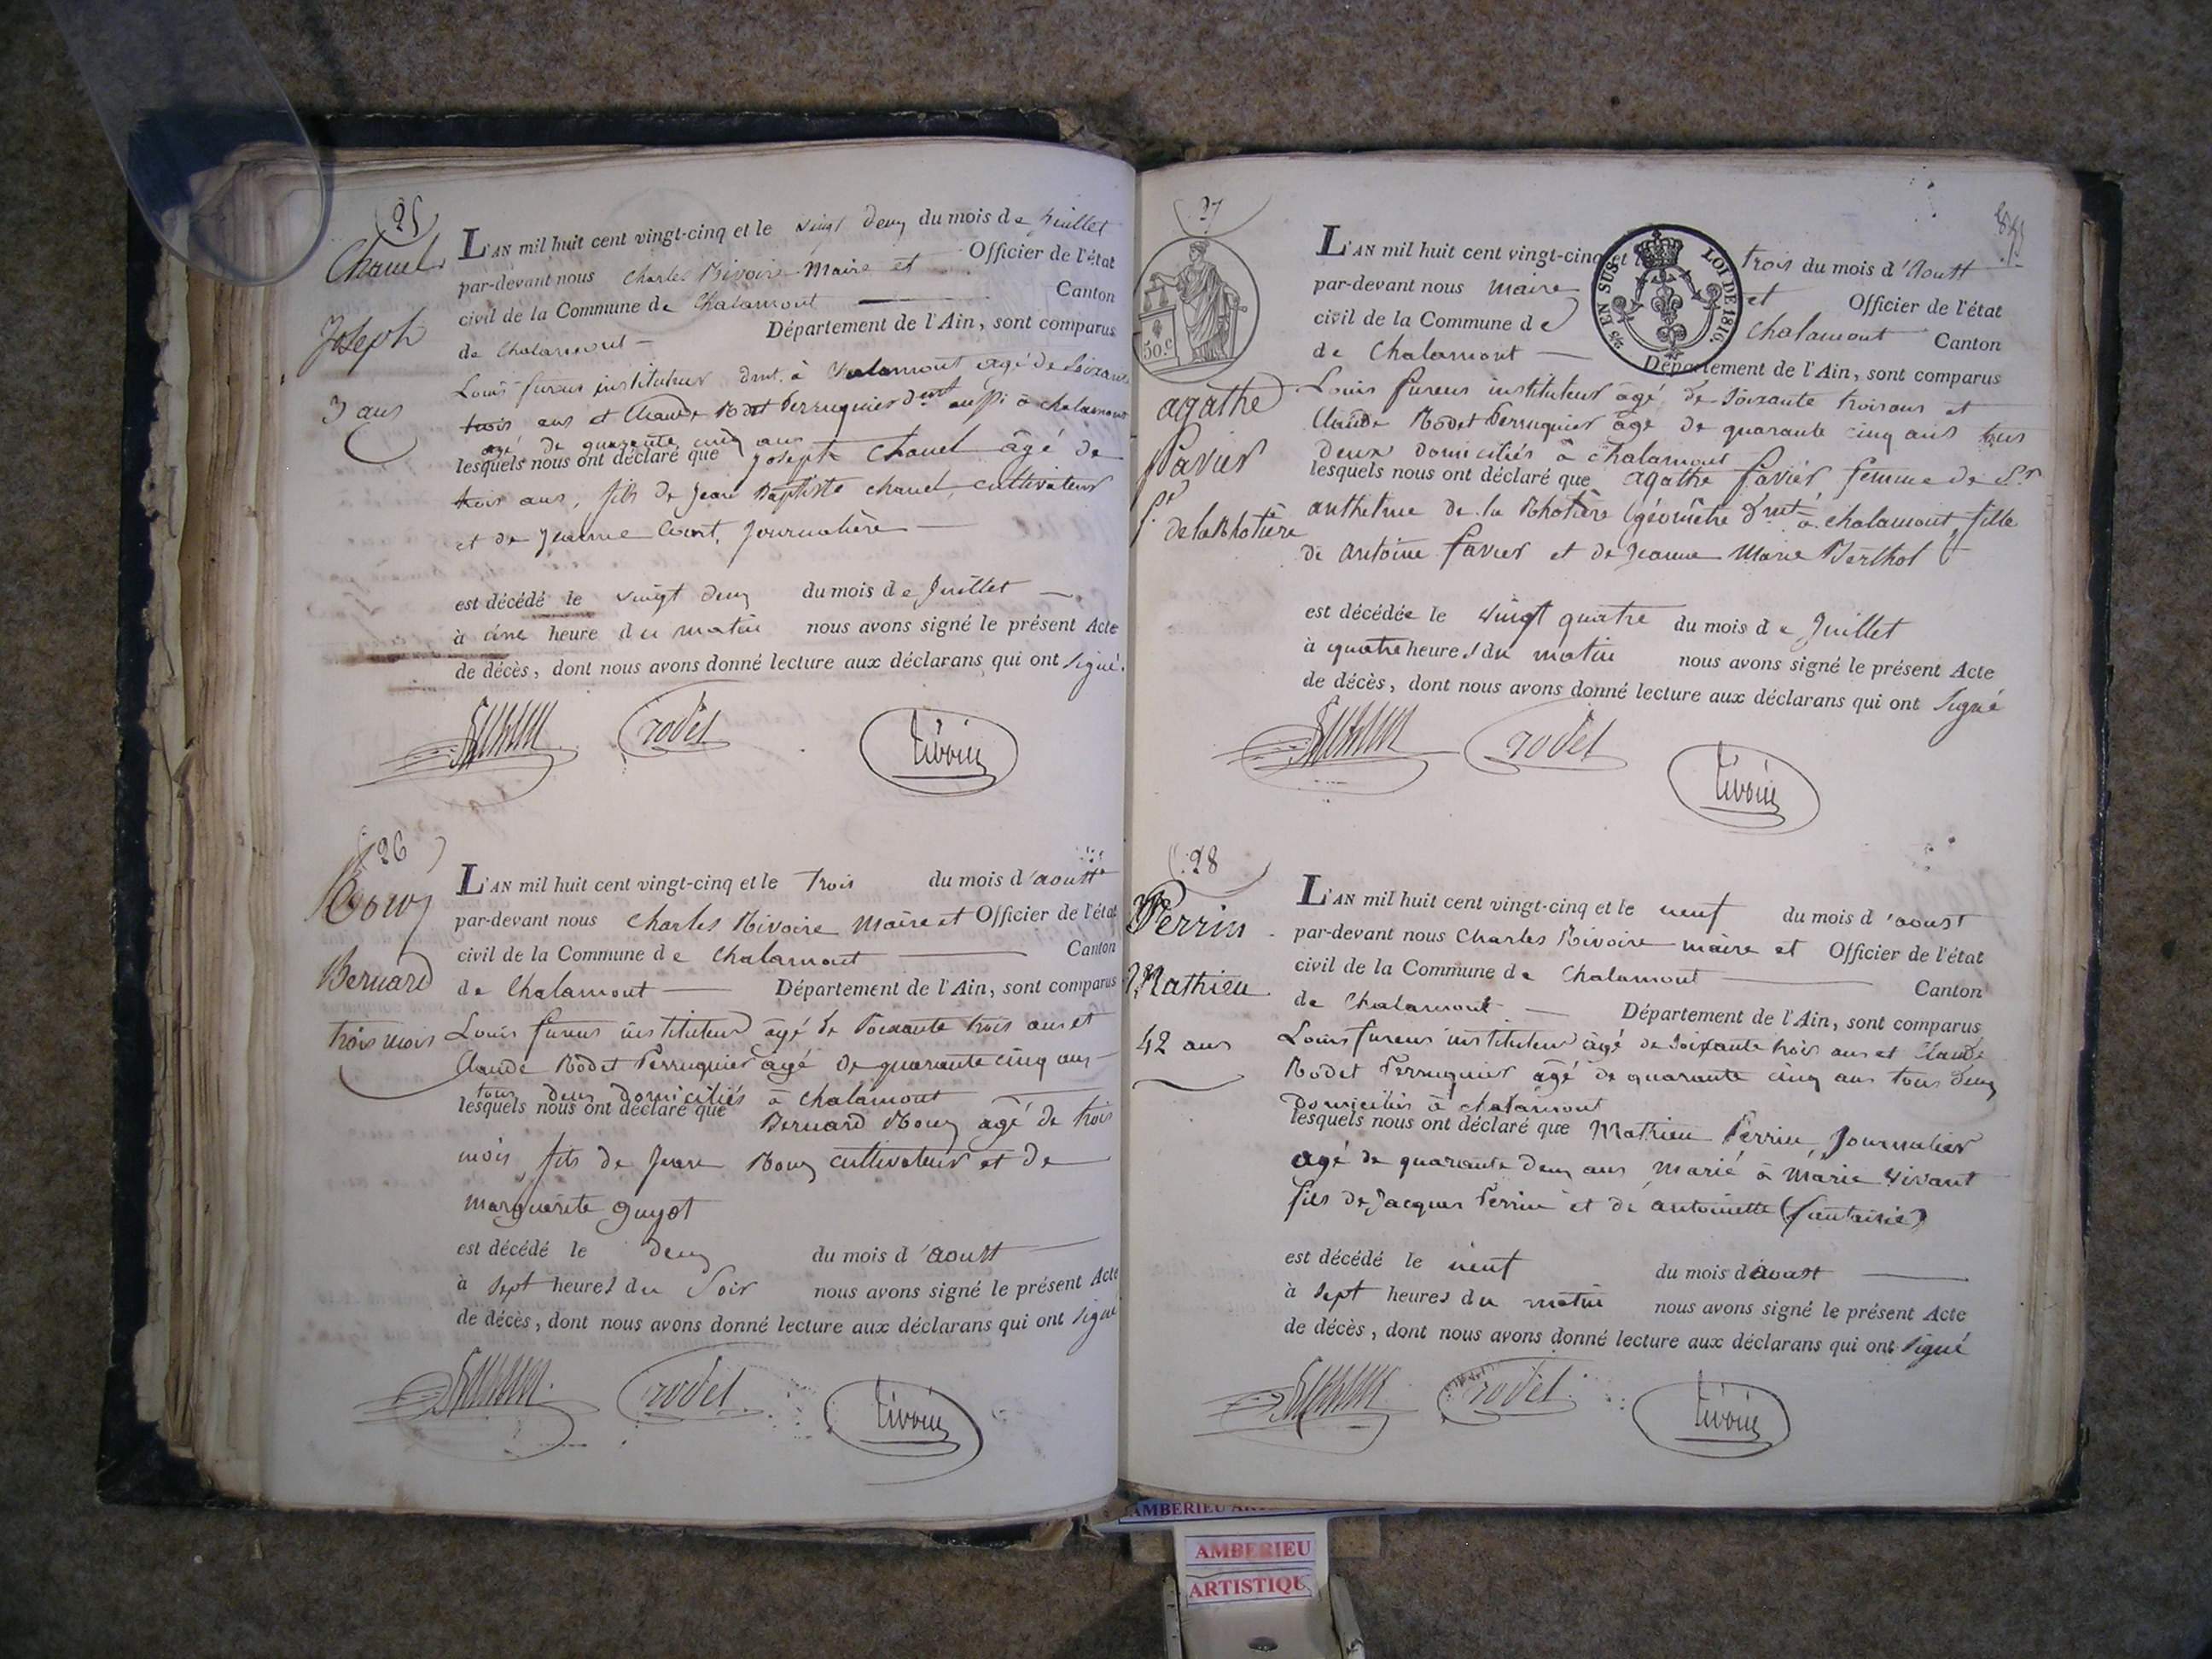 25
Chanel
Joseph
3 ans
L'AN mil huit cent vingt-cinq et le vingt deux du mois de Juillet
par-devant nous Charles Rivoire Maire et Officier de l'état
civil de la Commune de Chalamont Canton
de Chalamont Département de l'Ain, sont comparus
Louis fureus instituteur dmt. à Chalamont agé de Soixante
trois ans et Claude Rodet Perruquier dmt aussi à chalamont
agé de quarante cinq ans
lesquels nous ont déclaré que Joseph Chanel âgé de
trois ans, fils de Jean Baptiste chanel, cultivateur
et de Jeanne Journalière
est décédé le vingt deux du mois de Juillet
à une heure du matin nous avons signé le présent Acte
de décès, dont nous avons donné lecture aux déclarans qui ont signé.
rodet
rivoire
26
Roux
Bernard
trois mois
L'AN mil huit cent vingt-cinq et le Trois du mois d'aoust
par-devant nous Charles Rivoire Maire et Officier de l'état
civil de la Commune de Chalamont Canton
de Chalamont Département de l'Ain, sont comparus
Louis fureus instituteur âgé de Soixante trois ans et
Claude Rodet Perruquier âgé de quarante cinq ans
tous deux domiciliés à chalamont
lesquels nous ont déclaré que Bernard Roux agé de trois
mois fils de Jean Roux cultivateur et de
marguerite guyot
est décédé le deux du mois d'aoust
à Sept heures du Soir nous avons signé le présent Acte
de décès, dont nous avons donné lecture aux déclarans qui ont signé
rodet
rivoire
27
50.c
agathe
favier
fe
de la Rhotière
L'AN mil huit cent vingt-cinq et trois du mois d'Aoust
EN SUS. LOI DE 1816.
par-devant nous maire et Officier de l'état
civil de la Commune de Chalamont Canton
de Chalamont Département de l'Ain, sont comparus
Louis fureus instituteur âgé de Soixante trois ans et
Claude Rodet Perruquier âgé de quarante cinq ans tous
deux domiciliés à chalamont
lesquels nous ont déclaré que agathe favier femme de Sr
anthelme de la Rhotière géomètre dmt à chalamont, fille
de antoine favier et de Jeanne Marie Berthol
est décédée le vingt quatre du mois de Juillet
à quatre heures du matin nous avons signé le présent Acte
de décès, dont nous avons donné lecture aux déclarans qui ont Signé
rodet
rivoire
28
Perrin
Mathieu
42 ans
L'AN mil huit cent vingt-cinq et le neuf du mois d'aoust
par-devant nous Charles Rivoire maire et Officier de l'état
civil de la Commune de Chalamont Canton
de Chalamont Département de l'Ain, sont comparus
Louis fureus instituteur âgé de Soixante trois ans et Claude
Rodet Perruquier âgé de quarante cinq ans tous deux
Domiciliés à chalamont
lesquels nous ont déclaré que Mathieu Perrin, Journalier
agé de quarante deux ans marié à Marie vivant
fils de Jacques Perrin et de antoinette (fantaisie)
est décédé le neuf du mois d'aoust
à Sept heures du matin nous avons signé le présent Acte
de décès, dont nous avons donné lecture aux déclarans qui ont Signé
rodet
rivoire
AMBERIEU
AMBERIEU
ARTISTIQU